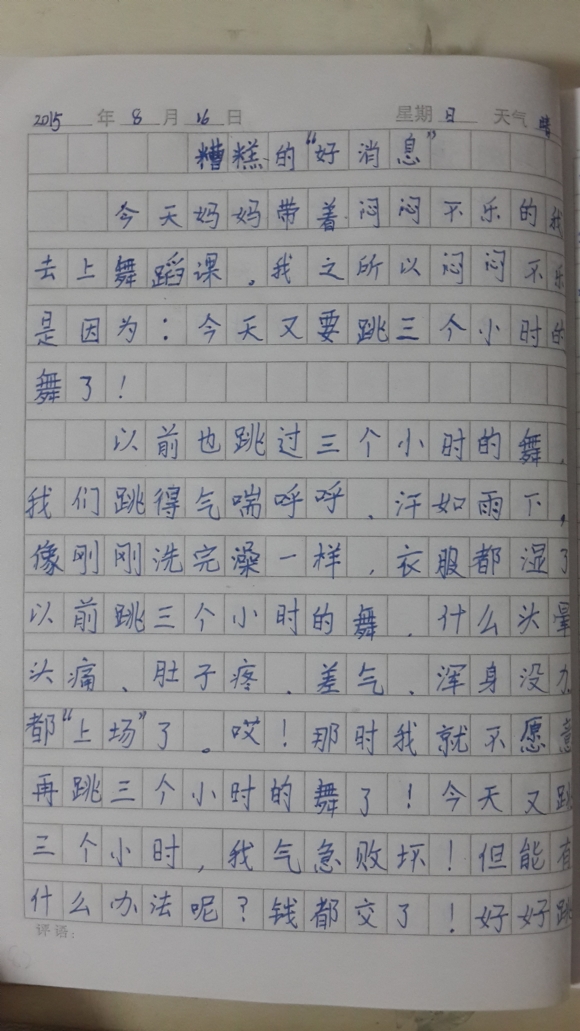 2015年8月16日 星期日 天气晴
糟糕的“好消息”
今天妈妈带着闷闷不乐的我
去上舞蹈课。我之所以闷闷不乐
是因为：今天又要跳三个小时的
舞了！
以前也跳过三个小时的舞，
我们跳得气喘呼呼、汗如雨下，
像刚刚洗完澡一样，衣服都湿了
以前跳三个小时的舞，什么头晕
头痛、肚子疼、差气、浑身没力
都“上场”了。哎！那时我就不愿意
再跳三个小时的舞了！今天又跳
三个小时，我气急败坏！但能有
什么办法呢？钱都交了！好好跳
评语：